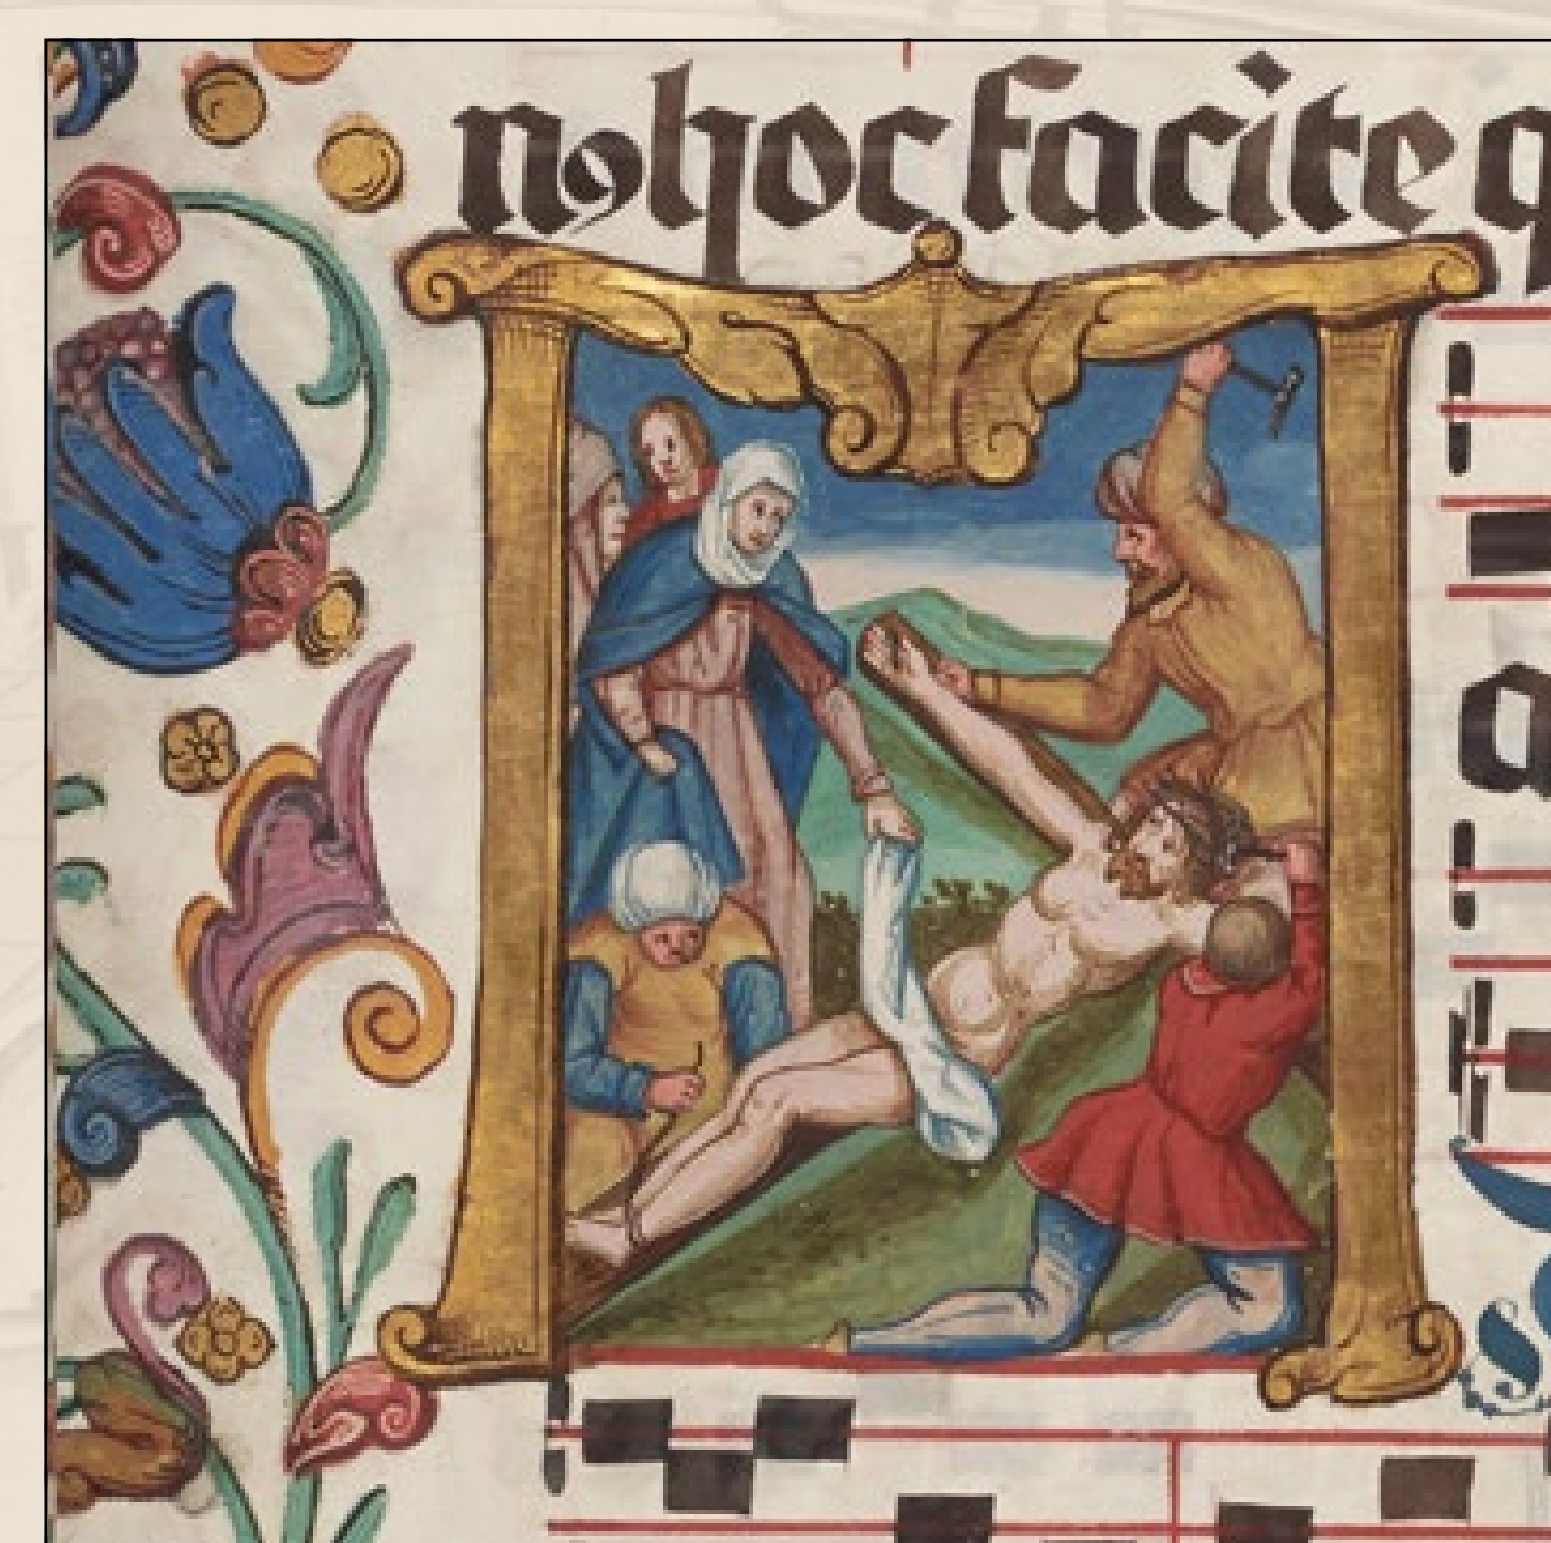 nꝰ hoc facite q
a